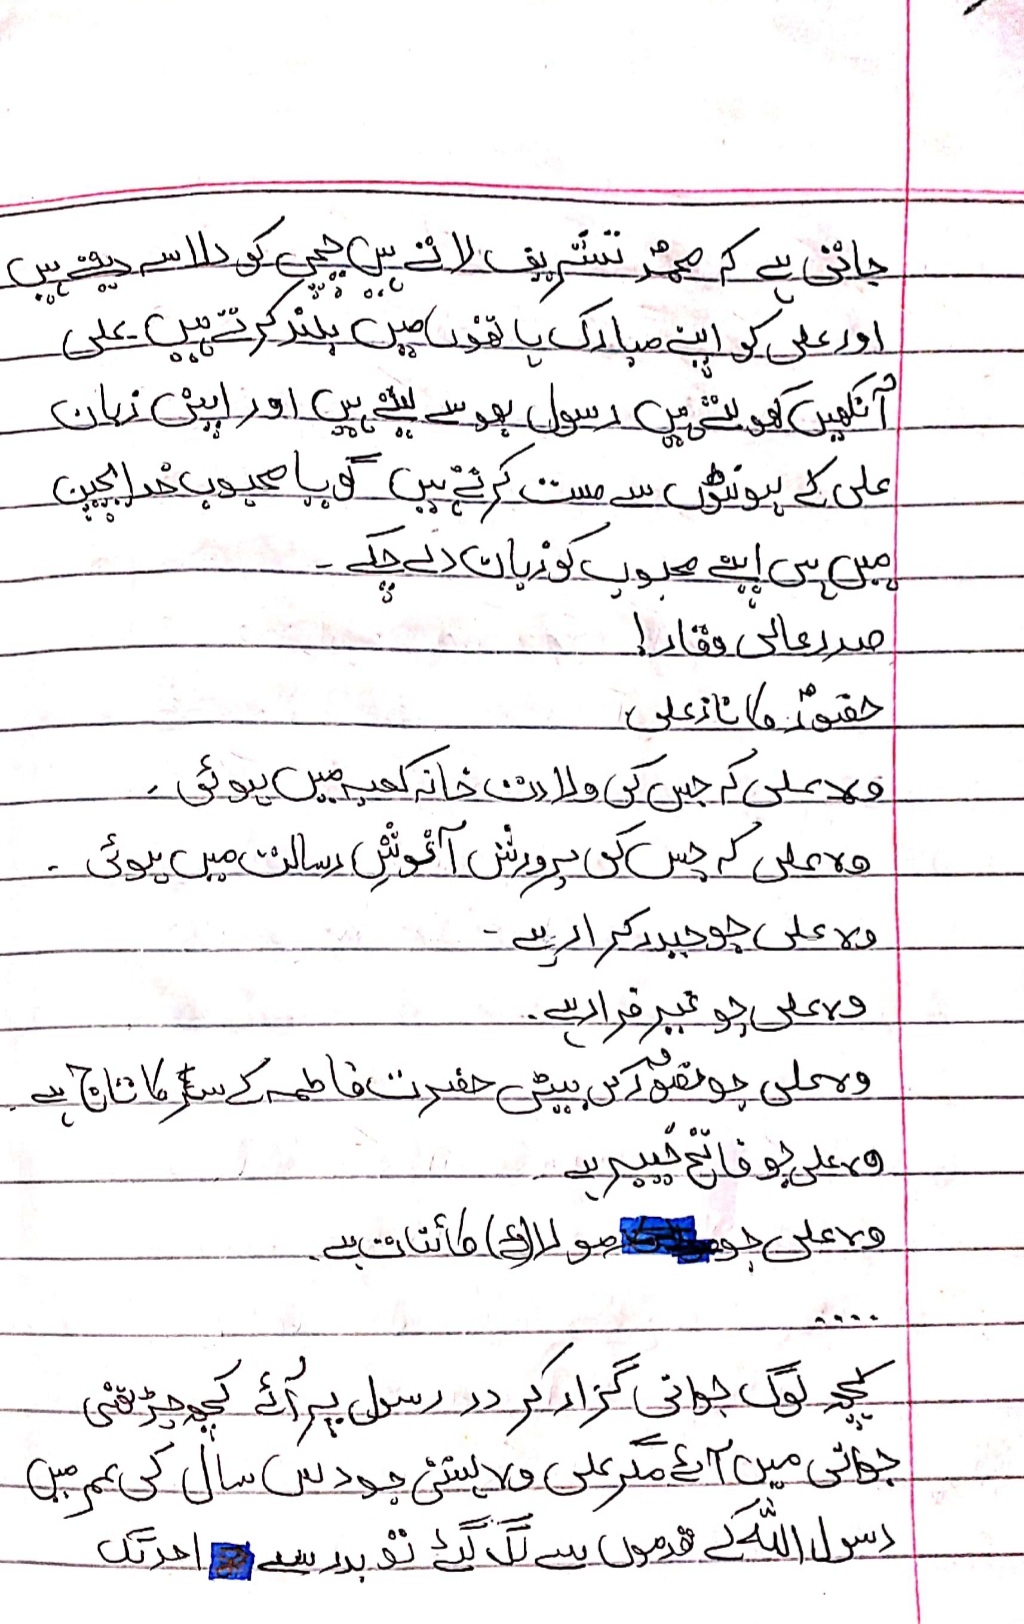 جاتی ہے کہ محمدؐ تشریف لاتے ہیں چچی کو دلاسے دیتے ہیں
اور علی کو اپنے مبارک ہاتھوں میں بلند کرتے ہیں۔ علی
آنکھیں کھولتے ہیں رسول بوسے لیتے ہیں اور اپنی زبان
علی کے ہونٹوں سے مست کرتے ہیں گویا محبوب خدا بچپن
میں ہی اپنے محبوب کو زبان دے چکے ۔
صدر عالی وقار!
حضورؐ کا ناز علی
وہ علی کہ جس کی ولادت خانہ کعبہ میں ہوئی ۔
وہ علی کہ جس کی پرورش آغوشِ رسالت میں ہوئی ۔
وہ علی جو حیدر کرار ہے ۔
وہ علی جو غیر فرار ہے ۔
وہ علی جو حضورؐ کی بیٹی حضرت فاطمہ کے سر کا تاج ہے ۔
وہ علی جو فاتح خیبر ہے
وہ علی جو مولا (ئے) کائنات ہے ۔
....
کچھ لوگ جوانی گزار کر در رسول پر آئے کچھ چڑھتی
جوانی میں آئے مگر علی وہ ہستی جو دس سال کی عمر میں
رسول اللہ کے قدموں سے لگ گئے تو بدر سے احد تک